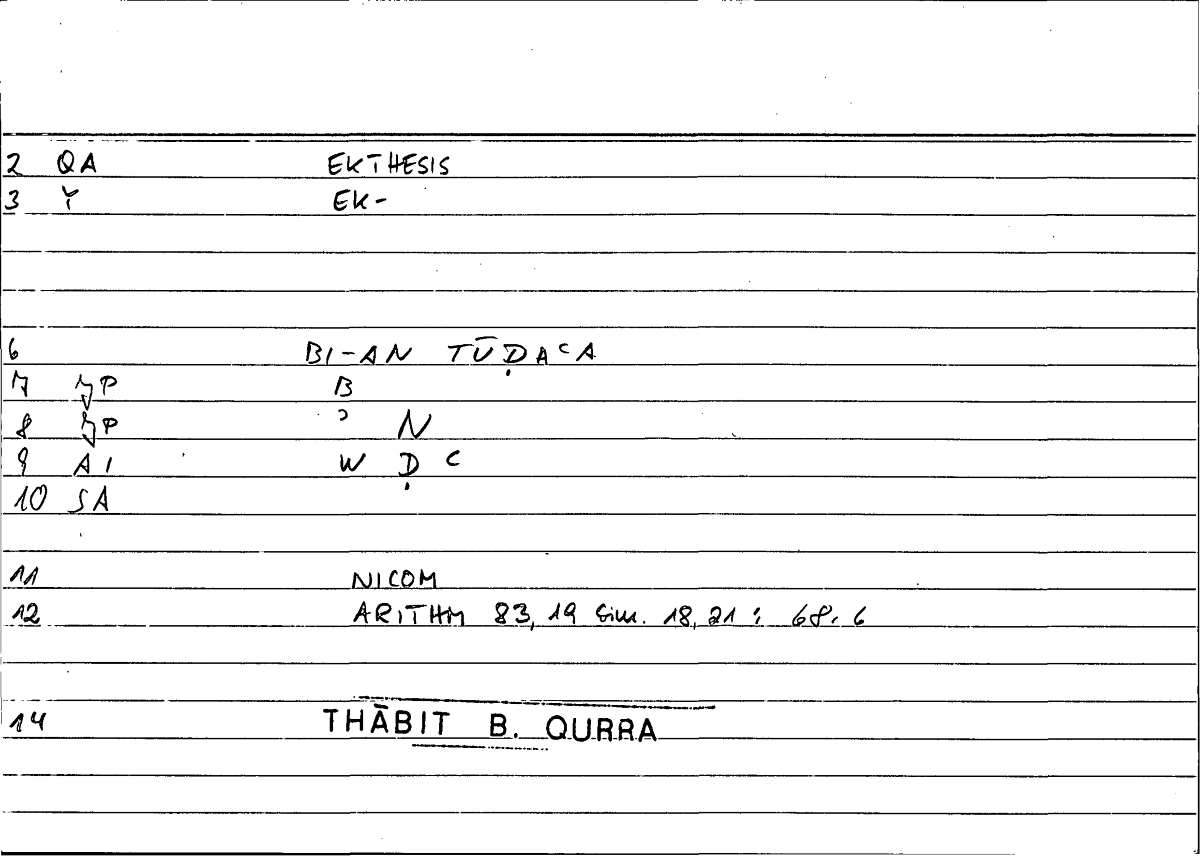 2 QA EKTHESIS
3 Y EK-
6 BI-AN TŪḌAʿA
7 P B
8 P ʾ N
9 AI W Ḍ ʿ
10 SA
11 NICOM
12 ARITHM 83, 19 Sim. 18, 21 ; 68. 6
14 THĀBIT B. QURRA